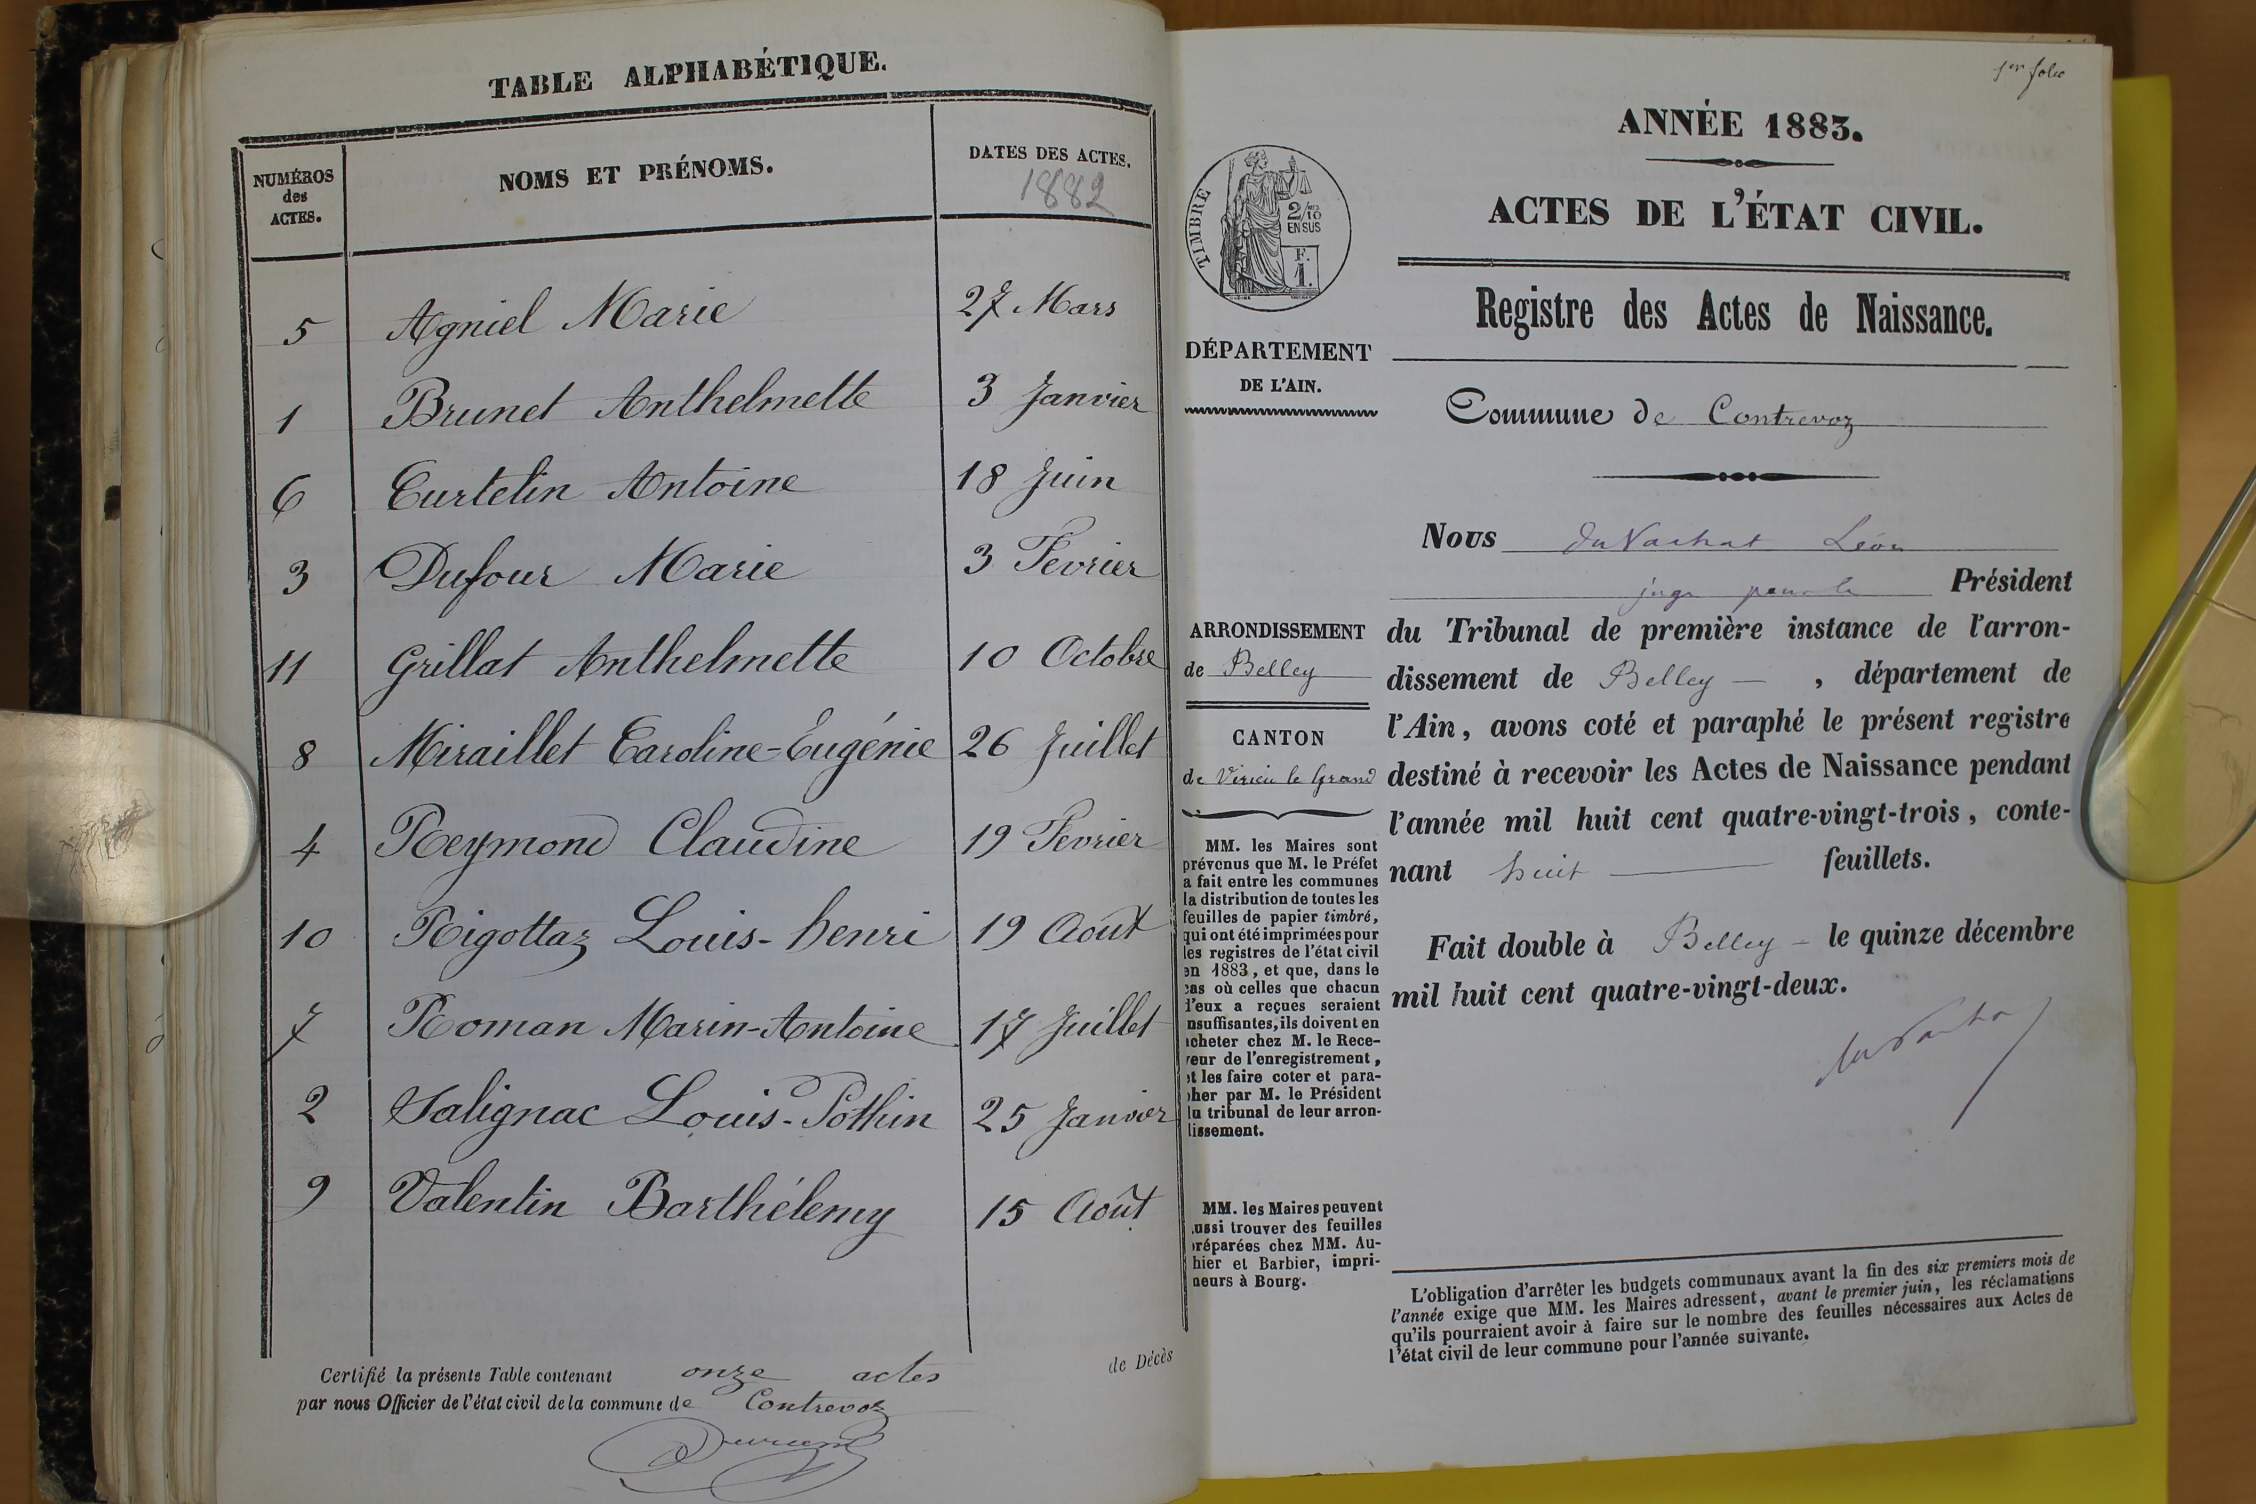 TABLE ALPHABÉTIQUE.
NUMÉROS
des
ACTES.
NOMS ET PRÉNOMS.
DATES DES ACTES.
1882
5 Agniel Marie 27 Mars
1 Brunet Anthelmette 3 Janvier
6 Curtelin Antoine 18 Juin
3 Dufour Marie 3 Février
11 Grillat Anthelmette 10 Octobre
8 Miraillet Caroline-Eugénie 26 Juillet
4 Reymond Claudine 19 Fevrier
10 Rigottaz Louis-henri 19 Août
7 Roman Marin-Antoine 17 Juillet
2 Salignac Louis-Pothin 25 Janvier
9 Valentin Barthélemy 15 Août
Certifié la présente Table contenant onze actes de Décès
par nous Officier de l'état civil de la commune de Contrevoz
1er folio
ANNÉE 1883.
ACTES DE L'ÉTAT CIVIL.
TIMBRE
2/10
EN SUS
F.
1.
Registre des Actes de Naissance.
DÉPARTEMENT
DE L'AIN.
Commune de Contrevoz
ARRONDISSEMENT
de Belley
CANTON
de Virieu le Grand
MM. les Maires sont
prévenus que M. le Préfet
a fait entre les communes
la distribution de toutes les
feuilles de papier timbré,
qui ont été imprimées pour
les registres de l'état civil
en 1883, et que, dans le
cas où celles que chacun
d'eux a reçues seraient
nsuffisantes, ils doivent en
acheter chez M. le Rece-
veur de l'enregistrement,
et les faire coter et para-
pher par M. le Président
du tribunal de leur arron-
dissement.
MM. les Maires peuvent
aussi trouver des feuilles
préparées chez MM. Au-
thier et Barbier, impri-
meurs à Bourg.
Nous du Vachat Léon
juge pour le Président
du Tribunal de première instance de l'arron-
dissement de Belley , département de
l'Ain, avons coté et paraphé le présent registre
destiné à recevoir les Actes de Naissance pendant
l'année mil huit cent quatre-vingt-trois, conte-
nant huit feuillets.
Fait double à Belley le quinze décembre
mil huit cent quatre-vingt-deux.
du Vachat
L'obligation d'arrêter les budgets communaux avant la fin des six premiers mois de
l'année exige que MM. les Maires adressent, avant le premier juin, les réclamations
qu'ils pourraient avoir à faire sur le nombre des feuilles nécessaires aux Actes de
l'état civil de leur commune pour l'année suivante.